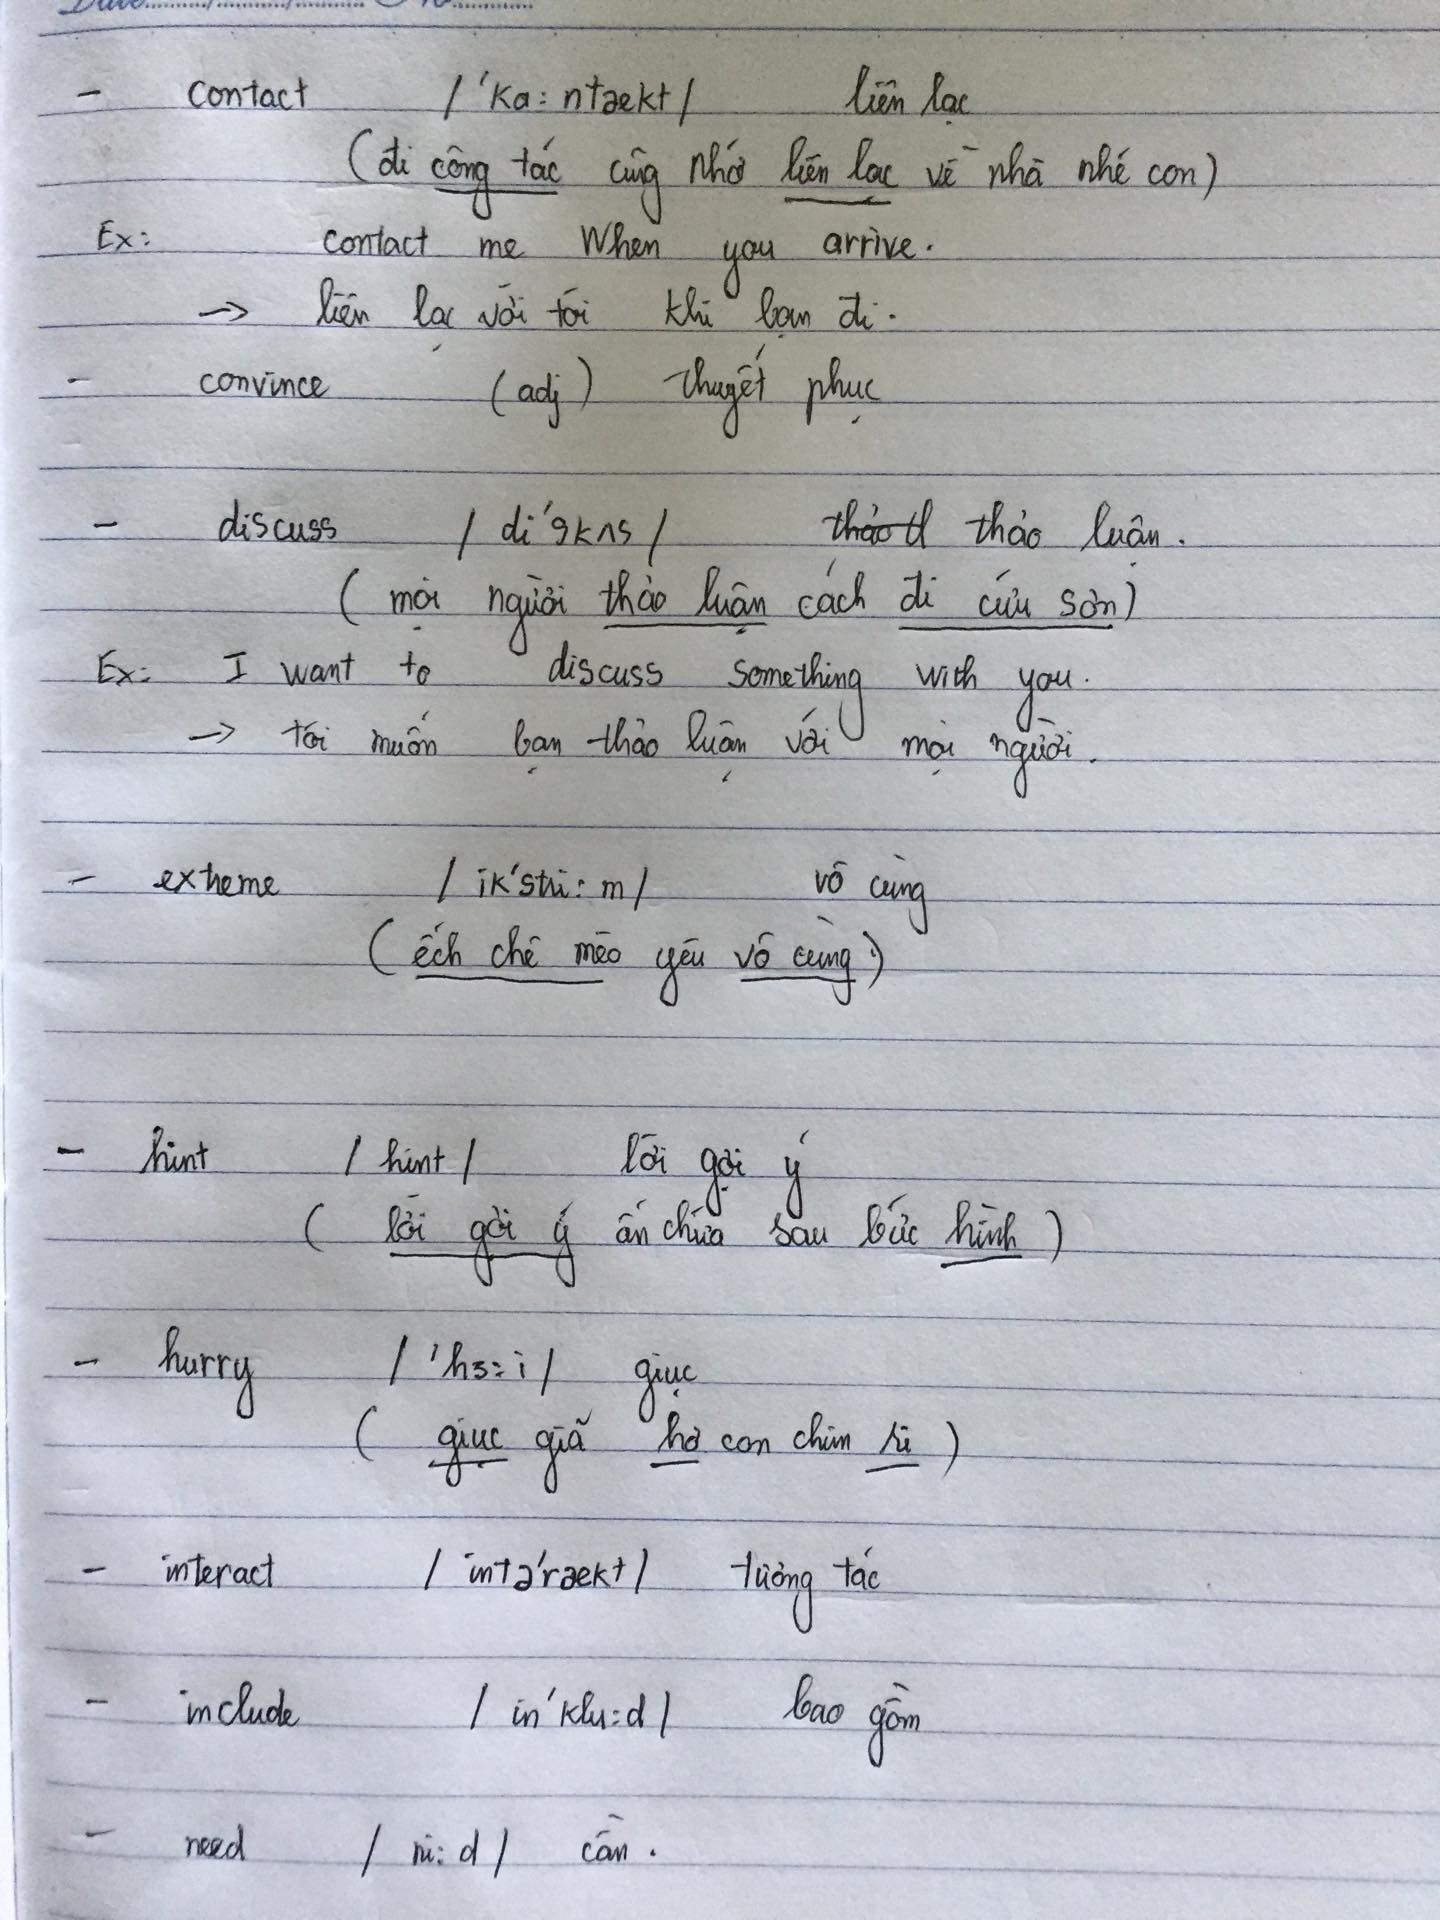 - contact /'ka:ntaekt/ liên lạc
(đi công tác cũng nhớ liên lạc về nhà nhé con)
Ex: contact me When you arrive.
→ liên lạc với tôi khi bạn đi.
- convince (adj) thuyết phục
- discuss /di'skʌs/ thảo luận.
(mọi người thảo luận cách đi cứu sơn)
Ex: I want to discuss something with you.
→ tôi muốn bạn thảo luận với mọi người.
- extreme /ik'stri:m/ vô cùng
(ếch chê mèo yêu vô cùng)
- hint /hint/ lời gợi ý
( lời gợi ý ẩn chứa sau bức hình )
- hurry /'hɜ:i/ giục
( giục giã hơ con chim ri )
- interact /intə'raekt/ tương tác
- include /in'klu:d/ bao gồm
- need /ni:d/ cần.